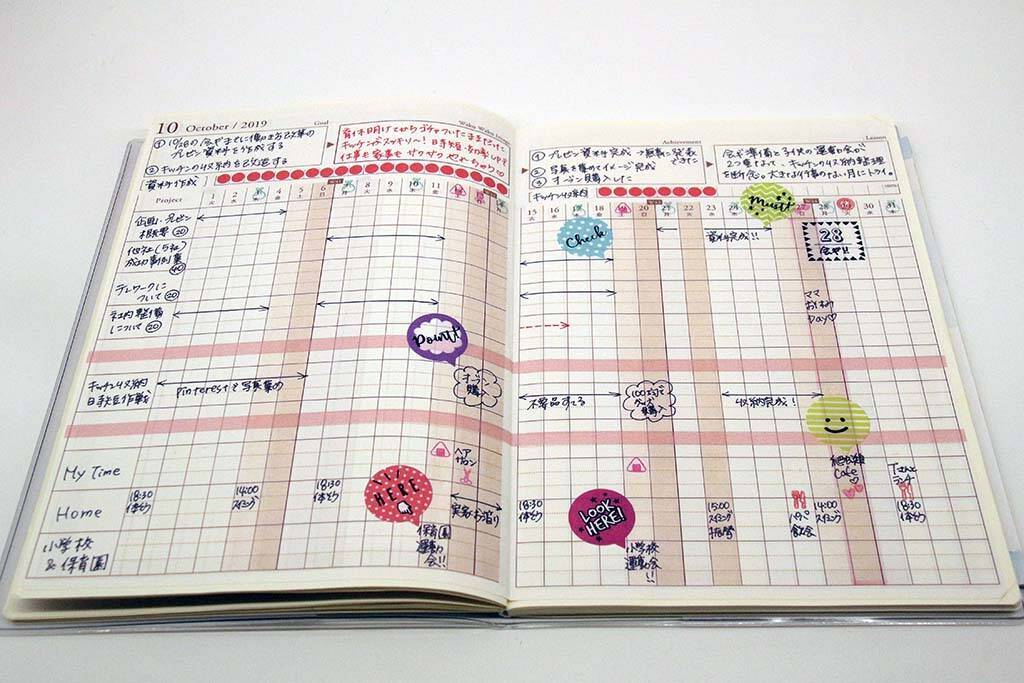 10 October / 2019
Goal
① 10/28の会議までに働き方改革の
プレゼン資料を作成する
② キッチン収納を改造する
育休明けてからゴチャついたままだった
キッチンがスッキリ〜！ 時短・効率UPで
仕事も家事も サクサク
資料作成
Project
1 2 3 4 5 6 7 8 9 10 11
企画・プレゼン
相談 20
他社(5社)
成功事例集
40
テレワークに
ついて 20
社内整備
について 20
Point!
オーブン
購入
キッチン収納
時短作戦
pinterestで写真集め
My Time
ヘア
サロン
Home
18:30
体そう
14:00
スイミング
18:30
体そう
HERE
実家お泊り
小学校
& 保育園
保育園
運動
会!!
Achievement
Lesson
① プレゼン資料完成 → 無事に発表
できた
② 写真を集めてイメージ完成
③ オーブン購入した
会議準備と子供の運動会が
2つ重なって、キッチンの収納整理
を断念。大きな行事のない月にトライ。
キッチン収納
100%
15 16 17 18 19 20 21 22 23 24 25 26 27 28 29 30 31
Check
Must!
資料完成!!
28
会議!!
ママ
お休み
Day♡
不要品すてる
100均で
グッズ
購入
収納完成!
Cafe
Tさんと
ランチ
18:30
体そう
LOOK
HERE!
15:00
スイミング
振替
パパ
飲み会
14:00
スイミング
18:30
体そう
小学校
運動会
!!